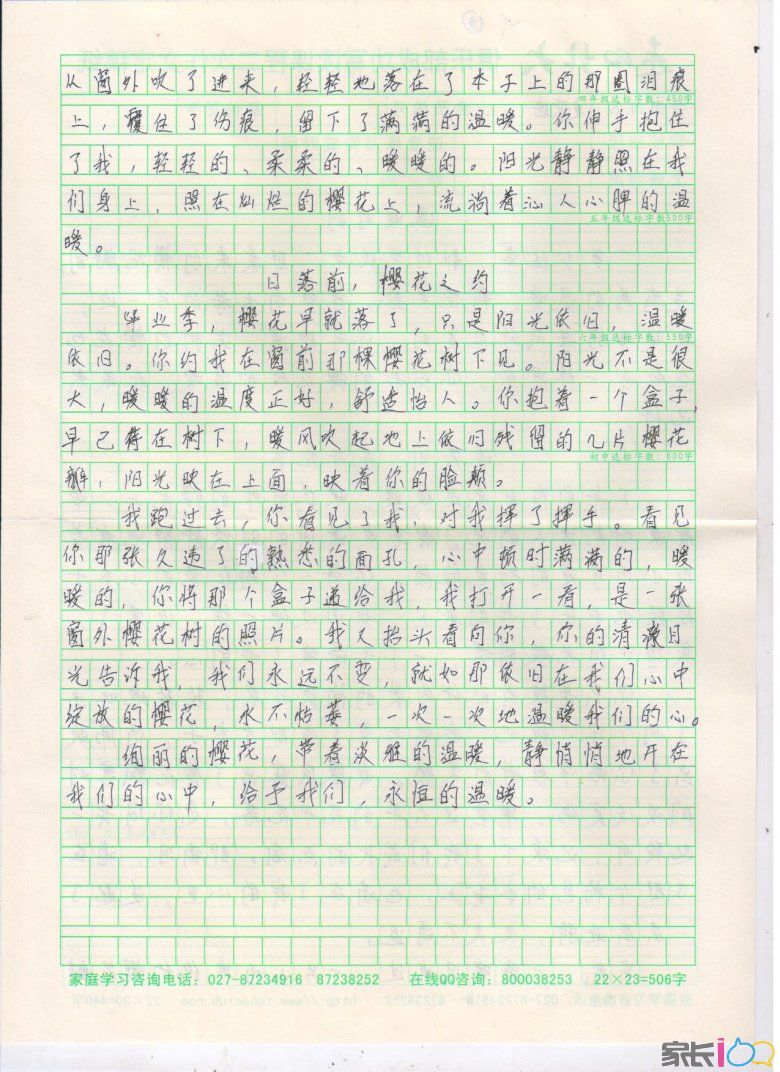 从窗外吹了进来，轻轻地落在了本子上的那圈泪痕
四年级达标字数：450字
上，覆住了伤痕，留下了满满的温暖。你伸手抱住
了我，轻轻的、柔柔的、暖暖的。阳光静静照在我
们身上，照在灿烂的樱花上，流淌着沁人心脾的温
五年级达标字数500字
暖。
日落前，樱花之约
毕业季，樱花早就落了，只是阳光依旧，温暖
六年级达标字数：550字
依旧。你约我在窗前那棵樱花树下见。阳光不是很
大，暖暖的温度正好，舒适怡人。你抱着一个盒子，
早已待在树下，暖风吹起地上依旧残留的几片樱花
初中达标字数：600字
瓣，阳光映在上面，映着你的脸颊。
我跑过去，你看见了我，对我挥了挥手。看见
你那张久违了的熟悉的面孔，心中顿时满满的，暖
暖的，你将那个盒子递给我，我打开一看，是一张
窗外樱花树的照片。我又抬头看向你，你的清澈目
光告诉我，我们永远不变，就如那依旧在我们心中
绽放的樱花，永不枯萎，一次一次地温暖我们的心。
绚丽的樱花，带着淡雅的温暖，静悄悄地开在
我们的心中，给予我们，永恒的温暖。
家庭学习咨询电话：027-87234916 87238252 在线QQ咨询：800038253 22×23=506字
家长100